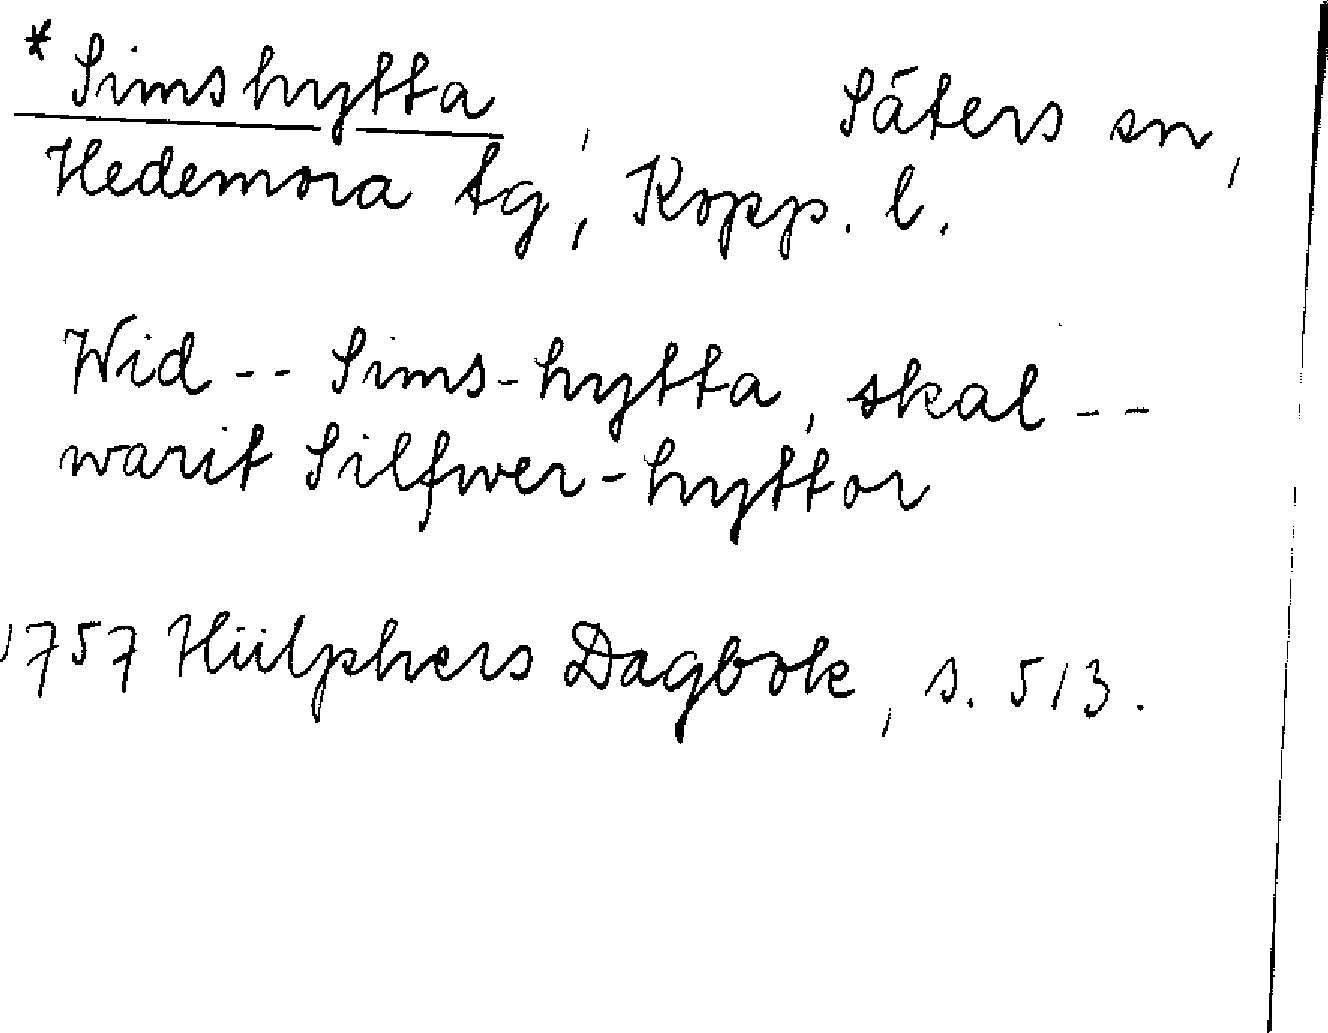 * Simshytta, Säters sn,
Hedemora tg, Kopp. l.
Wid -- Sims-hytta, skal --
warit Silfwer-hyttor
1757 Hülphers Dagbok, s. 513.